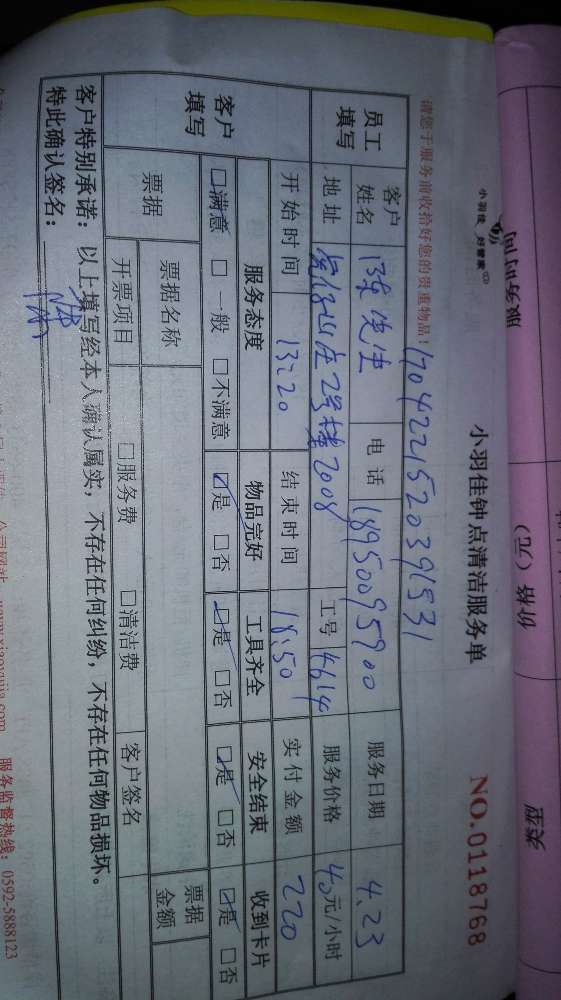 小羽佳 好管家
小羽佳钟点清洁服务单
NO.0118768
请您于服务前收拾好您的贵重物品!
1704221520391531
员工填写
客户姓名 陈先生 电话 18950095900 服务日期 4.23
地址 2号楼2008 工号 4614 服务价格 40元/小时
开始时间 13:20 结束时间 18:50 实付金额 220
客户填写
服务态度 物品完好 工具齐全 安全结束 收到卡片
□满意 □一般 □不满意 ☑是 □否 ☑是 □否 ☑是 □否 ☑是 □否
票据 票据名称 票据金额
开票项目 □服务费 □清洁费 客户签名
客户特别承诺:以上填写经本人确认属实,不存在任何纠纷,不存在任何物品损坏。
特此确认签名:
公司网站:www.xiaoyujia.com 服务监督热线:0592-5888123
服务时间
价格(元)